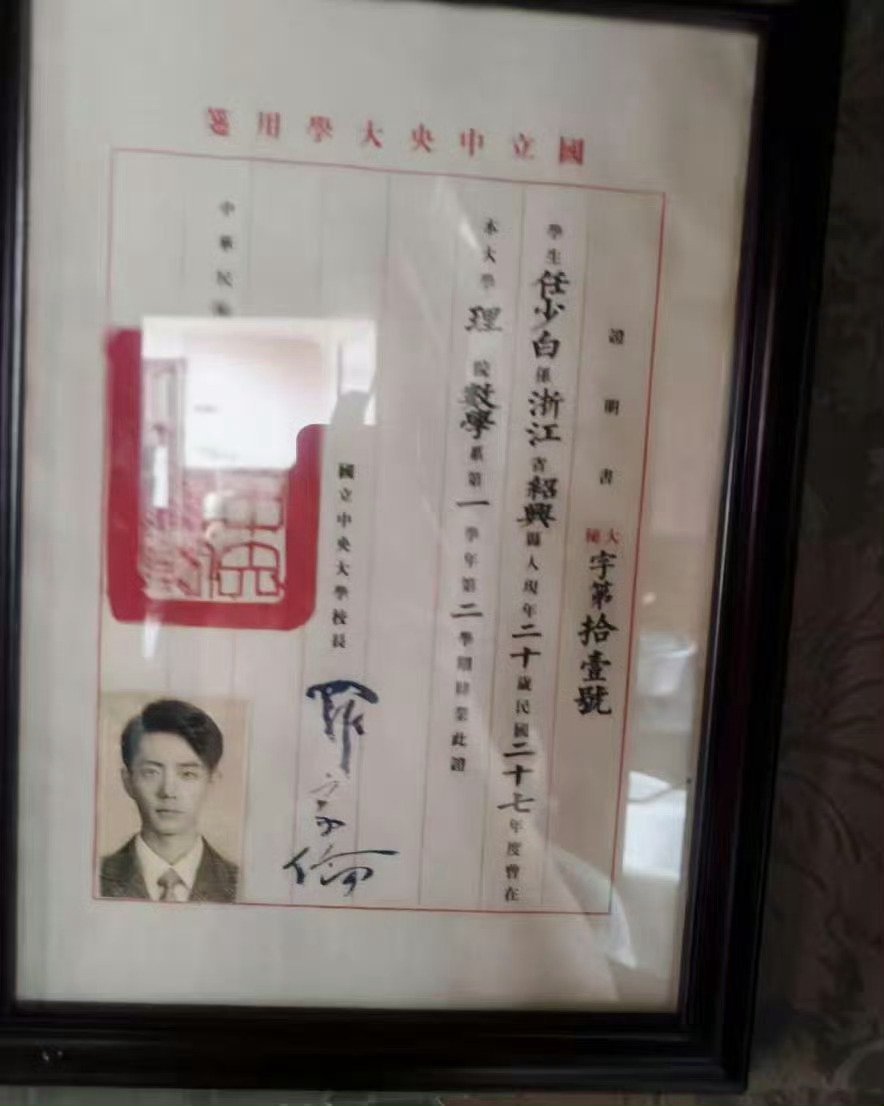 國立中央大學用箋
證明書 大秘字第拾壹號
學生任少白係浙江省紹興縣人現年二十歲民國二十七年度曾在
本大學理院數學系第一學年第二學期肄業此證
國立中央大學校長
羅家倫
中華民